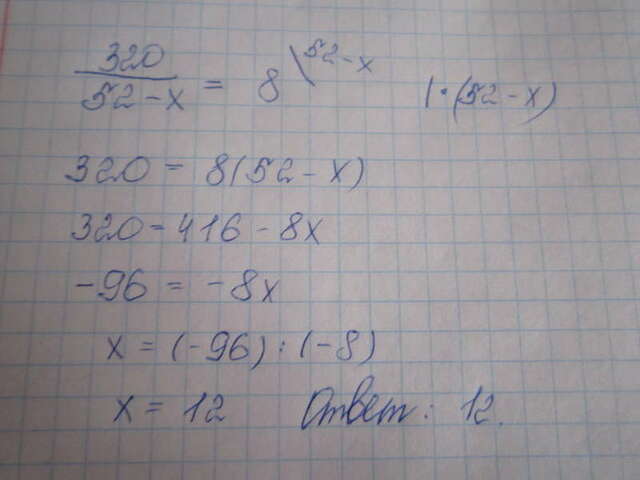 320/(52-x) = 8 \52-x |·(52-x)
320 = 8(52-x)
320=416-8x
-96 = -8x
x = (-96) : (-8)
x = 12 Ответ: 12.